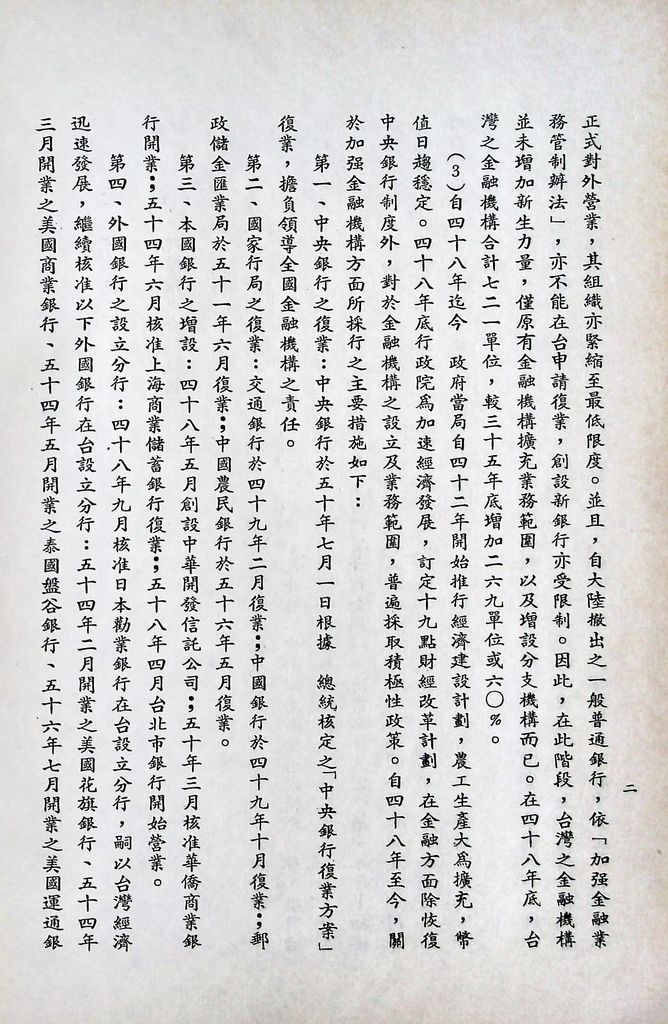 正式對外營業，其組織亦緊縮至最低限度。並且，自大陸撤出之一般普通銀行，依「加强金融業
務管制辦法」，亦不能在台申請復業，創設新銀行亦受限制。因此，在此階段，台灣之金融機構
並未增加新生力量，僅原有金融機構擴充業務範圍，以及增設分支機構而已。在四十八年底，台
灣之金融機構合計七二一單位，較三十五年底增加二六九單位或六〇％。
（3）自四十八年迄今　政府當局自四十二年開始推行經濟建設計劃，農工生產大爲擴充，幣
值日趨穩定。四十八年底行政院爲加速經濟發展，訂定十九點財經改革計劃，在金融方面除恢復
中央銀行制度外，對於金融機構之設立及業務範圍，普遍採取積極性政策。自四十八年至今，關
於加强金融機構方面所採行之主要措施如下：
第一、中央銀行之復業：中央銀行於五十年七月一日根據　總統核定之「中央銀行復業方案」
復業，擔負領導全國金融機構之責任。
第二、國家行局之復業：交通銀行於四十九年二月復業；中國銀行於四十九年十月復業；郵
政儲金匯業局於五十一年六月復業；中國農民銀行於五十六年五月復業。
第三、本國銀行之增設：四十八年五月創設中華開發信託公司；五十年三月核准華僑商業銀
行開業；五十四年六月核准上海商業儲蓄銀行復業；五十八年四月台北市銀行開始營業。
第四、外國銀行之設立分行：四十八年九月核准日本勸業銀行在台設立分行，嗣以台灣經濟
迅速發展，繼續核准以下外國銀行在台設立分行：五十四年二月開業之美國花旗銀行、五十四年
三月開業之美國商業銀行、五十四年五月開業之泰國盤谷銀行、五十六年七月開業之美國運通銀
二